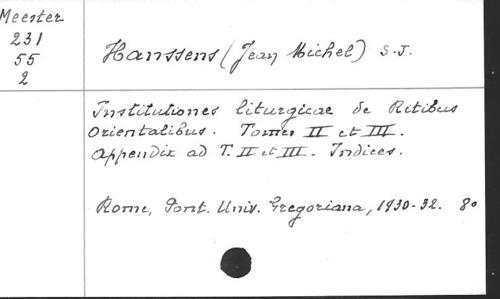 Meester
231
55
2
Hanssens (Jean Michel) S.J.
Institutiones liturgicae de Ritibus
Orientalibus. Tomus II et III.
Appendix ad T. II et III. Indices.
Rome, Pont. Univ. Gregoriana, 1930-32. 8o